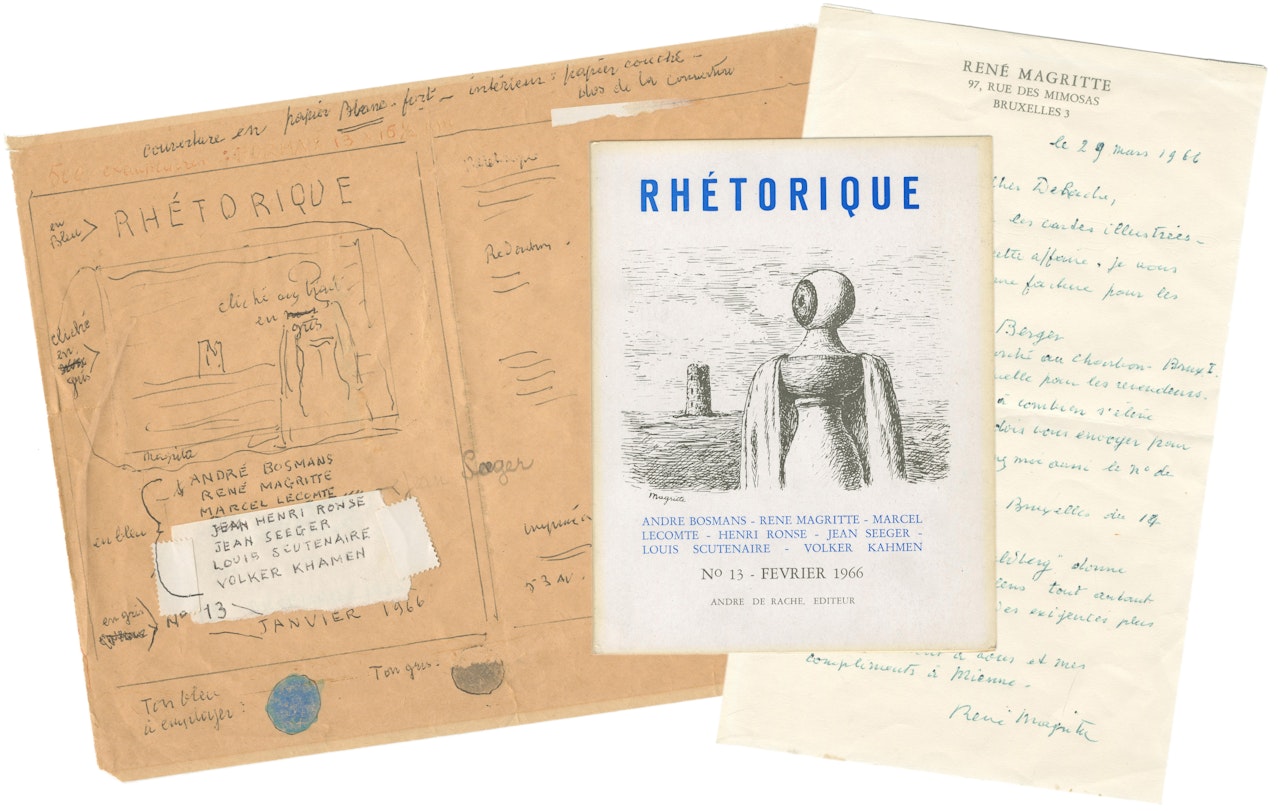 couverture en papier Blanc fort - intérieur : papier couché -
dos de la couverture
en
Bleu
RHÉTORIQUE
cliché au trait
en
gris
cliché
en
gris
Magritte
ANDRÉ BOSMANS
RENÉ MAGRITTE
MARCEL LECOMTE
JEAN HENRI RONSE
JEAN SEEGER
LOUIS SCUTENAIRE
VOLKER KHAMEN
en bleu
en gris
No 13
JANVIER 1966
Ton bleu
à employer :
Ton gris.
Rhétorique
Rédaction
Seeger
RHÉTORIQUE
Magritte
ANDRE BOSMANS - RENE MAGRITTE - MARCEL
LECOMTE - HENRI RONSE - JEAN SEEGER -
LOUIS SCUTENAIRE - VOLKER KAHMEN
No 13 - FEVRIER 1966
ANDRE DE RACHE, EDITEUR
RENÉ MAGRITTE
97, RUE DES MIMOSAS
BRUXELLES 3
le 29 mars 1966
cher De Rache,
les cartes illustrées -
cette affaire. je vous
facture pour les
Berger
au Charbon - Brux I.
pour les revendeurs.
à combien s'élève
dois vous envoyer pour
moi aussi le no de
Bruxelles du 17
donne
tout autant
exigences plus
à vous et mes
compliments à Mienne.
René Magritte